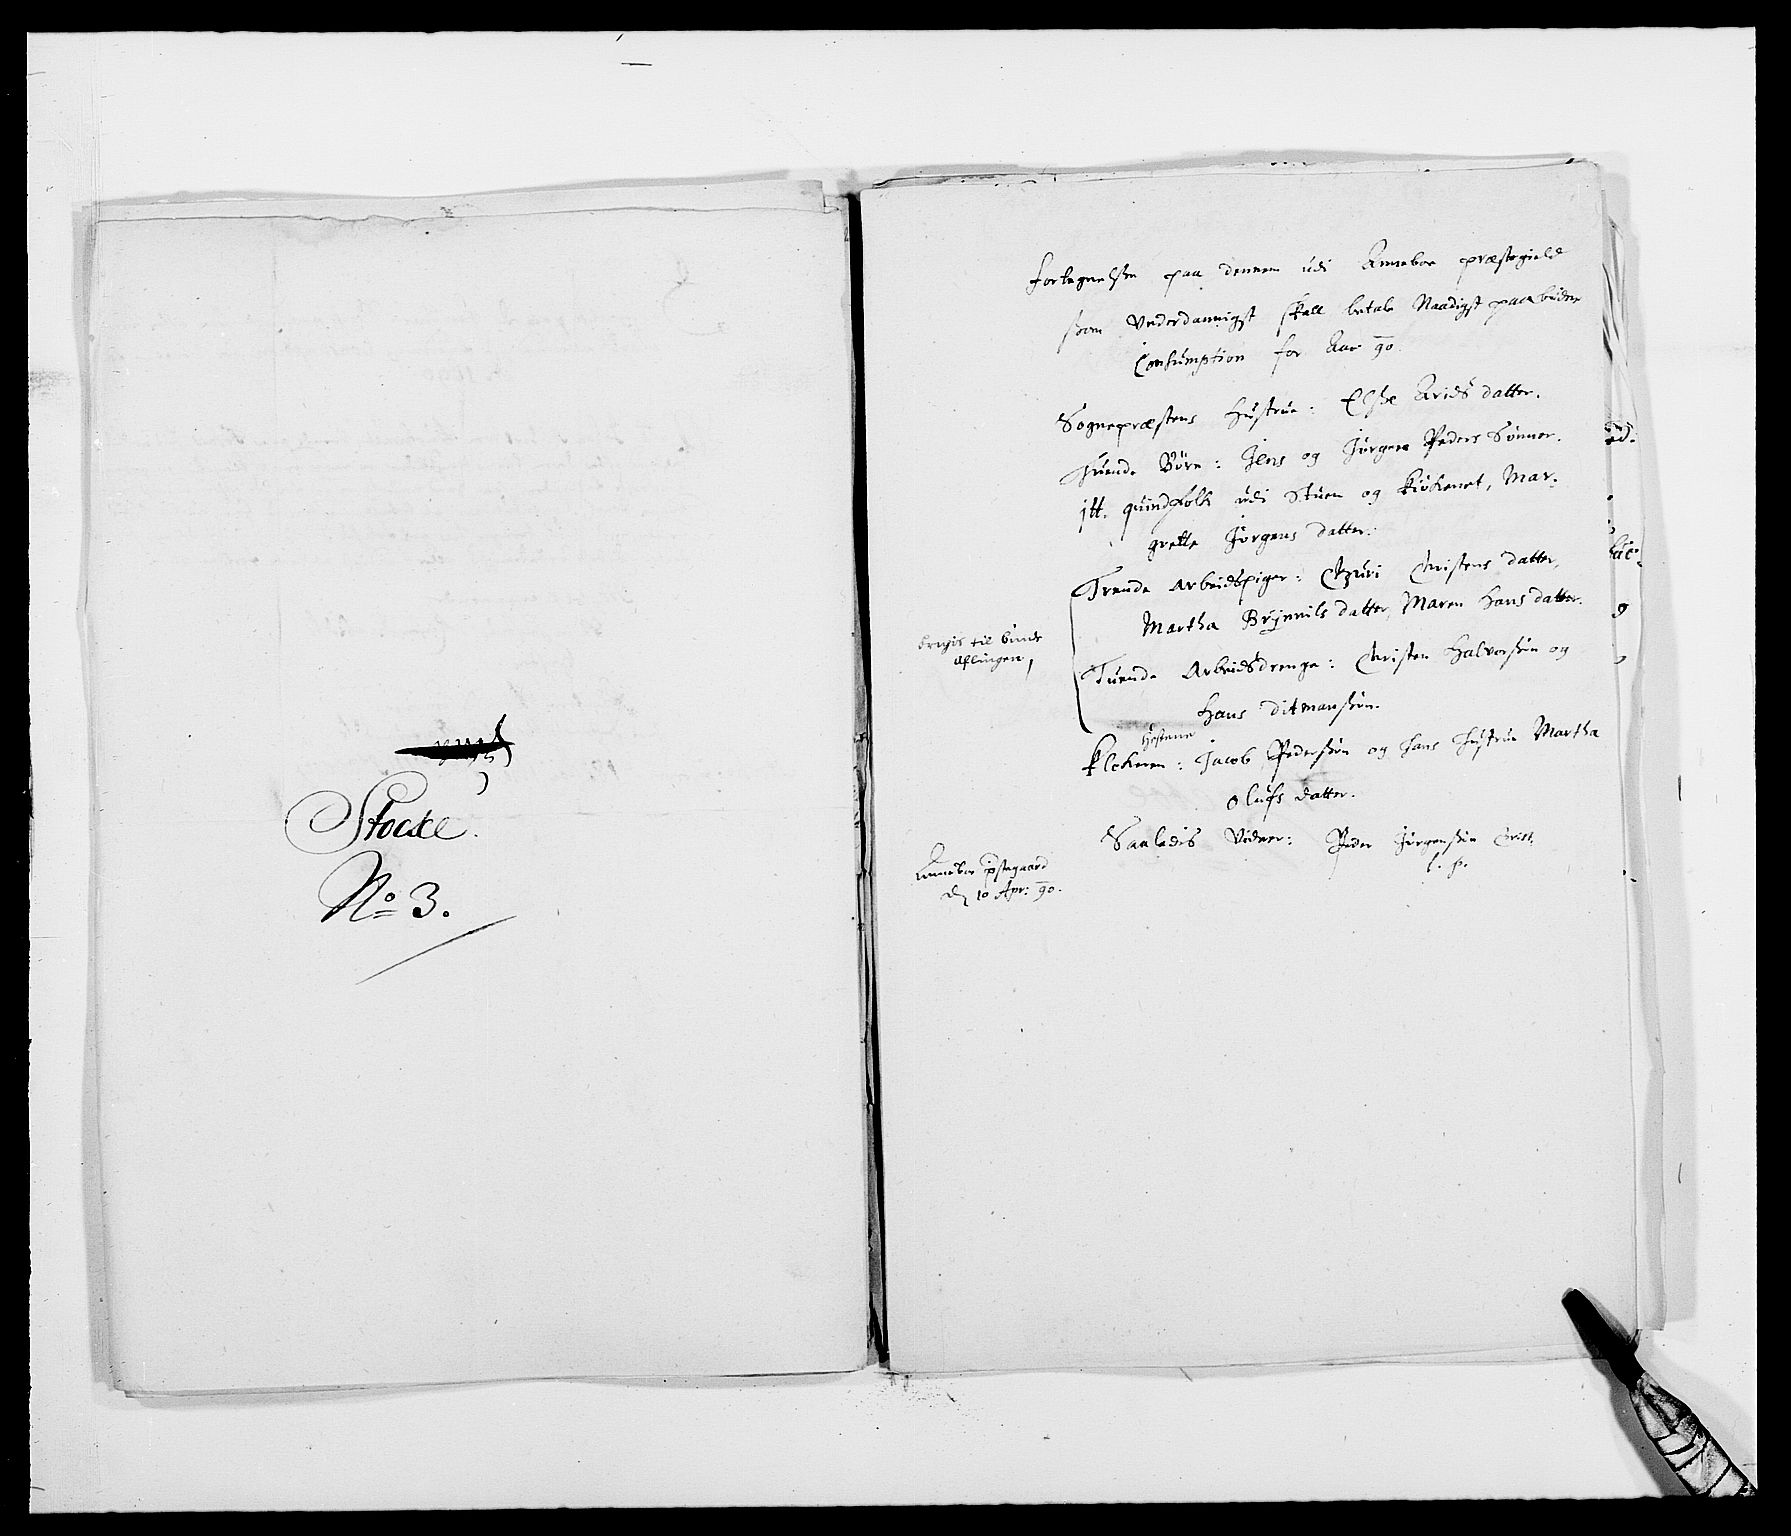 Stocke.
No 3.
fortegnelsse paa dennem udi Anneboe præstegield
ssom Underdannigst skall betale Naadigst paabudne
Consumption for Aar 90.
Sognepræstens Hustrue: Elsse Arids datter.
Tuende Börn: Jens og Jörgen Peders Sönner.
itt. quindfolk udi Stuen og kiökenet, Mar-
grette Jörgens datter.
Trende Arbeidspiger: Guri Christens datter,
Martha Brynnils datter, Maren Hans datter.
brugis til bunde
aflingen,
Tuende Arbeidsdrenge: Christen Halvorssön og
Hans Ditmanssön.
Klokeren: Jacob Pederssön og Hans Hustrue Martha
Olufs datter.
Saaledis Vidner: Peder Jörgenssön
Anneboe pstegaard
d. 10 Apr: 90.